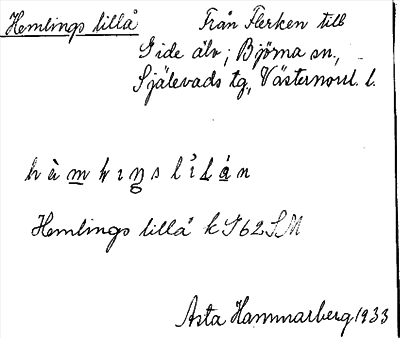 Hemlings lillå Från Flerken till
Gide älv; Björna sn.,
Själevads tg., Västernorrl. l.
Hemlings lillå k J62SM
Asta Hammarberg 1933